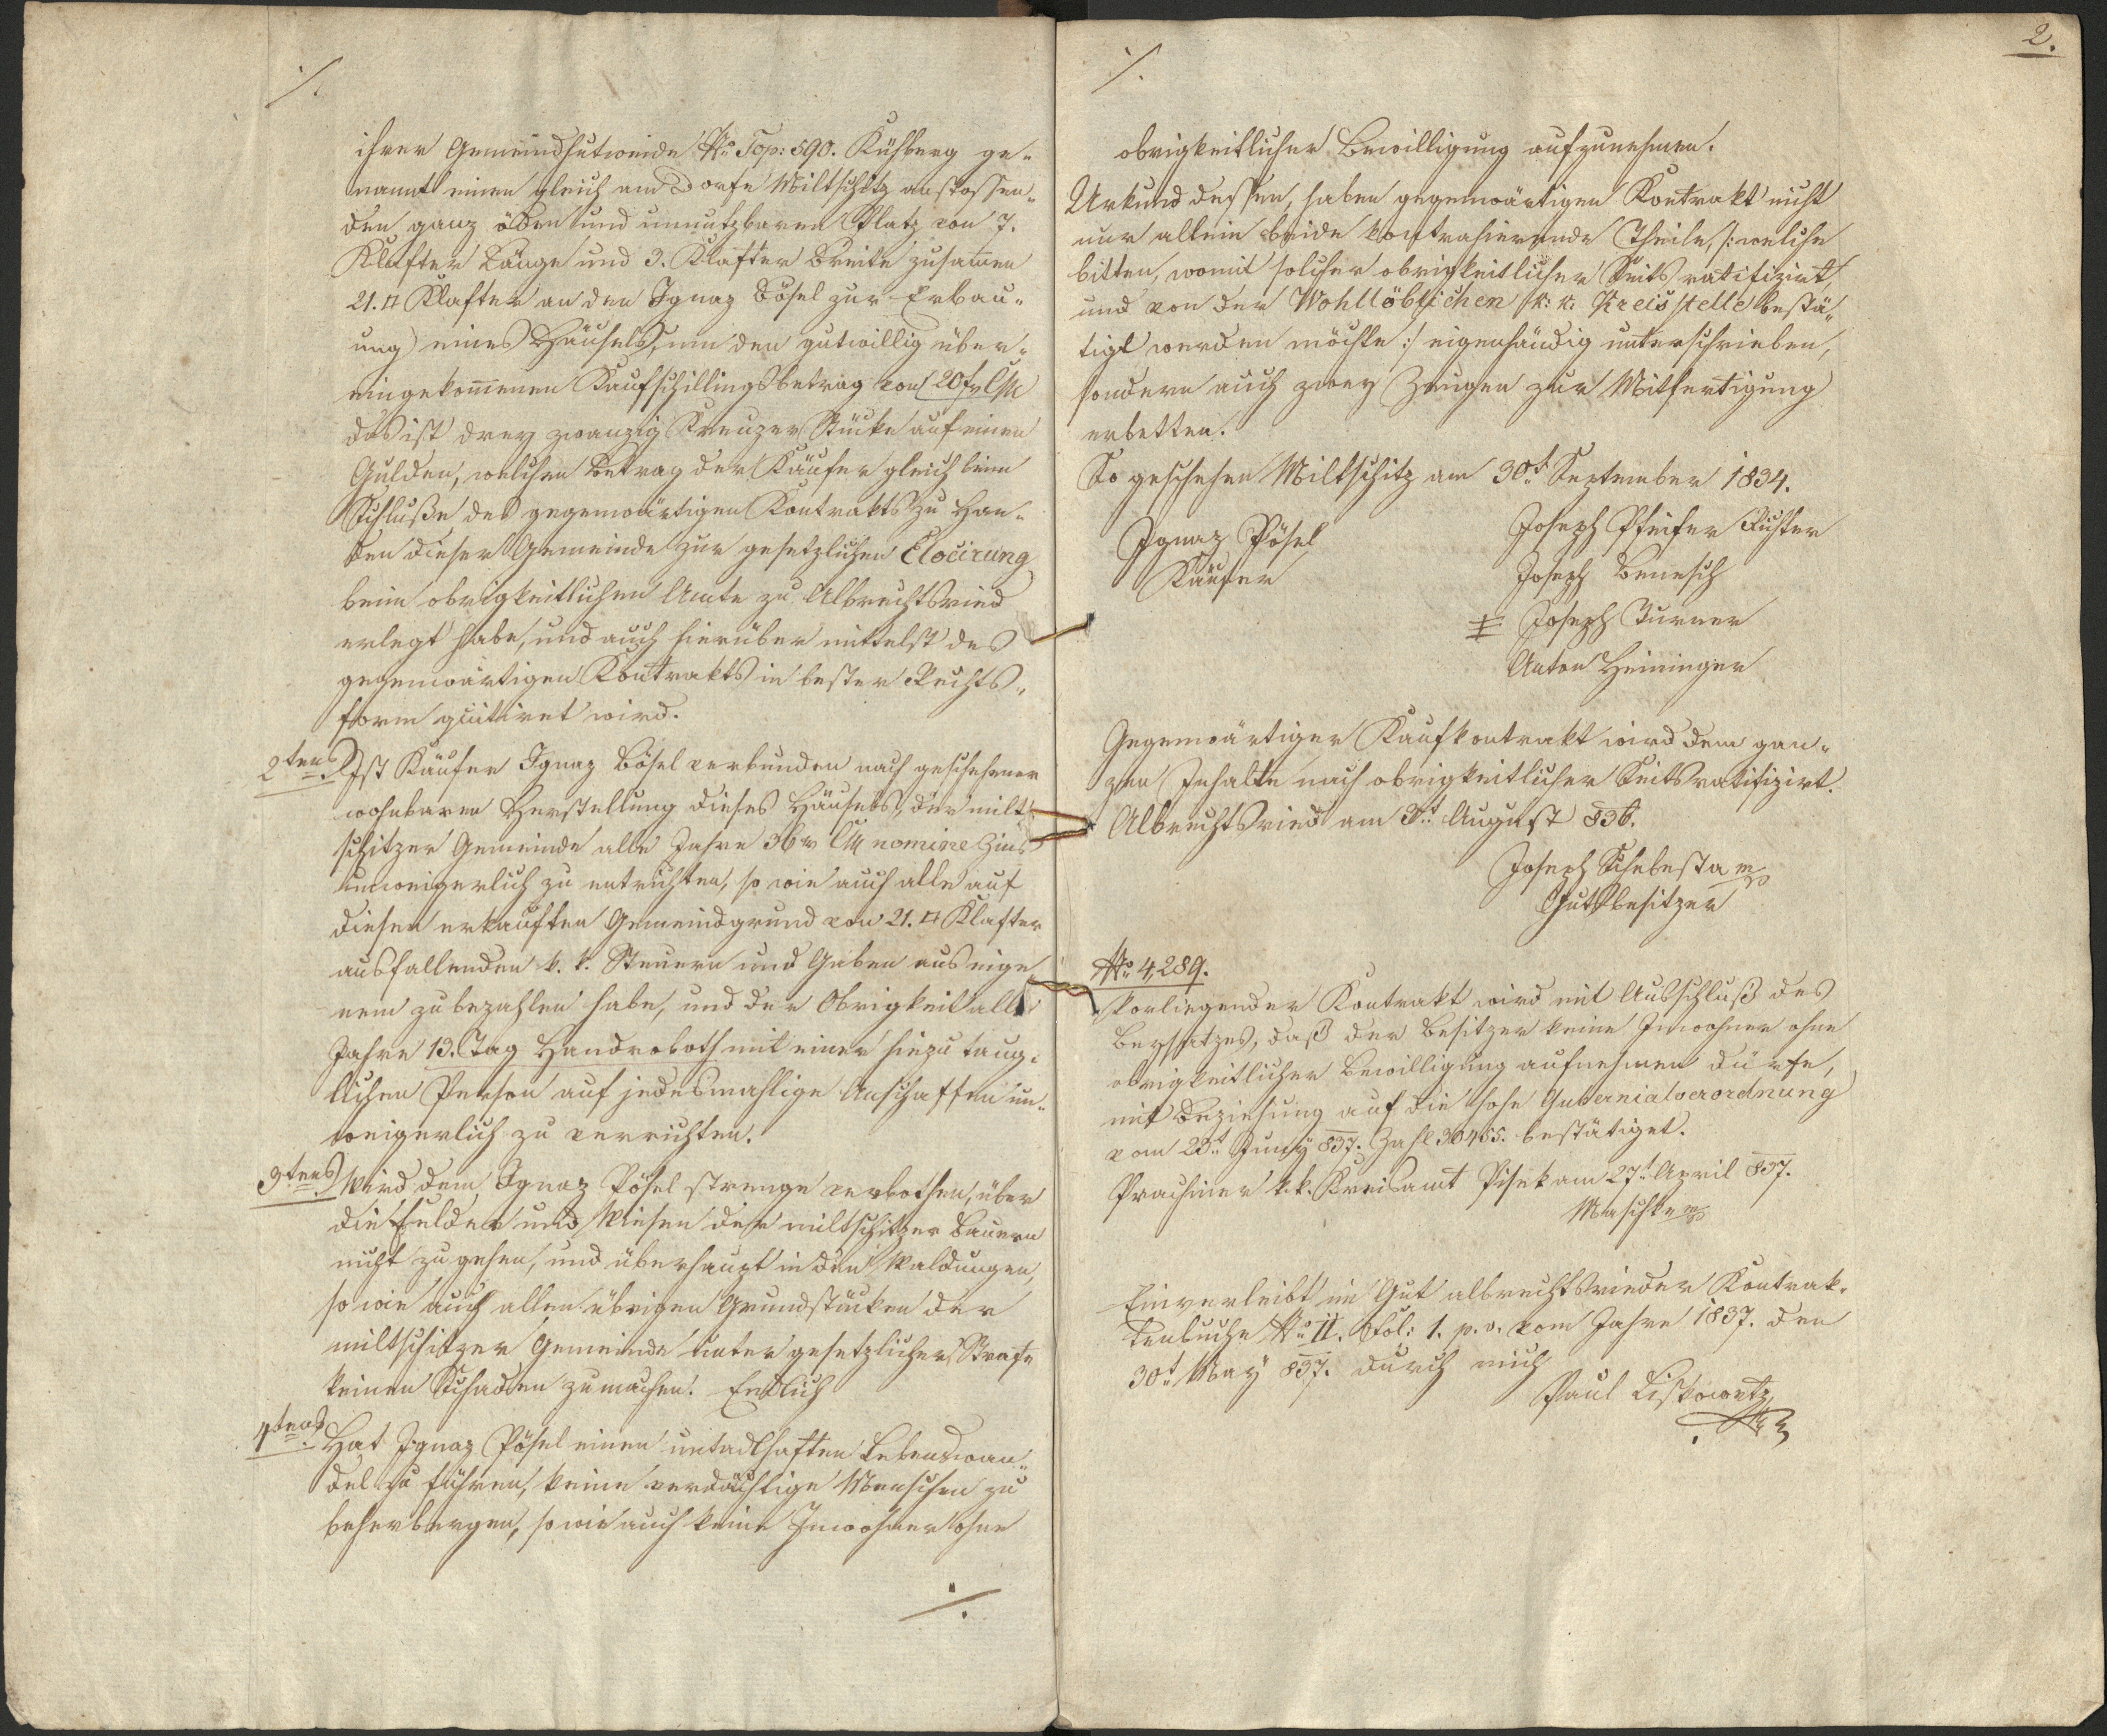 ./.
ihrer Gemeindhutweide No Top: 590. Kühberg ge-
nannt einen gleich am Dorfe Miltschitz anstossen-
den ganz öden und unnutzbaren Platz von 7.
Klafter Länge und 3. Klafter Breite zusamen
21. □ Klafter an den Ignaz Bösel zur Erbau-
ung eines Häusels, um den gutwillig über-
eingekomenen Kaufschillingsbetrag von 20 f CMz
das ist drey zwanzig Kreuzer Stücke auf einen
Gulden, welchen Betrag der Käufer gleich beim
Schluße des gegenwärtigen Kontrakts zu Han-
den dieser Gemeinde zur gesetzlichen Elocirung
beim obrigkeitlichen Amte zu Albrechtsried
erlegt habe, und auch hierüber mittelst des
gegenwärtigen Kontrakts in bester Rechts-
form quitiret wird.
2tens Ist Käufer Ignaz Bösel verbunden nach geschehener
wohnbaren Herstellung dieses Häusels, der milt-
schitzer Gemeinde alle Jahre 36 xr CMz nomine Zins
unweigerlich zu entrichten, so wie auch alle auf
diesen erkauften Gemeindgrund von 21. □ Klafter
ausfallenden k. k. Steuern und Gaben aus eige-
nem zu bezahlen habe, und der Obrigkeit alle
Jahre 13. Tag Handroboth mit einer hiezu taug-
lichen Person auf jedesmahlige Anschaffen un-
weigerlich zu verrichten.
3tens Wird dem Ignaz Pösel strenge verbothen, über
die Felder und Wiesen der miltschitzer Bauern
nicht zu gehen, und überhaupt in den Waldungen,
so wie auch allen übrigen Grundstücken der
miltschitzer Gemeinde unter gesetzlicher Strafe
keinen Schaden zu machen. Endlich
4tens Hat Ignaz Pösel einen untadlhaften Lebenswan-
del zu führen, keine verdächtige Menschen zu
beherbergen, so wie auch keine Inwohner ohne
./.
2.
./.
obrigkeitlicher Bewilligung aufzunehmen.
Urkund dessen, haben gegenwärtigen Kontrakt nicht
nur allein beide kontrahierende Theile, /: welche
bitten, womit solcher obrigkeitlicher Seits ratifizirt,
und von der Wohllöblichen k: k: Kreisstelle bestä-
tigt werden möchte :/ eigenhändig unterschrieben,
sondern auch zwey Zeugen zur Mitfertigung
erbetten.
So geschehen Miltschitz am 30t September 1834.
Ignaz Pösel
Käufer
Joseph Pfeifer Richter
Joseph Benesch
Joseph Turner
Anton Heininger
Gegenwärtiger Kaufkontrakt wird dem gan-
zen Inhalte nach obrigkeitlicher Seits ratifizirt.
Albrechtsried am 3t August 836.
Joseph Schebesta mp
Gutsbesitzer
No 4,289.
Vorliegender Kontrakt wird mit Ausschluß des
Beysatzes, daß der Besitzer keine Inwohner ohne
obrigkeitlicher Bewilligung aufnehmen dürfe,
mit Beziehung auf die hohe Gubernialverordnung
vom 23t Juny 837. Zahl 30455. bestätiget.
Prachiner k. k. Kreisamt Pisek am 27t April 837.
Maschke mp
Einverleibt im Gut albrechtsrieder Kontrak-
tenbuche No II. Fol: 1. p. v. vom Jahre 1837. den
30t May 837. durch mich
Paul Liskowetz